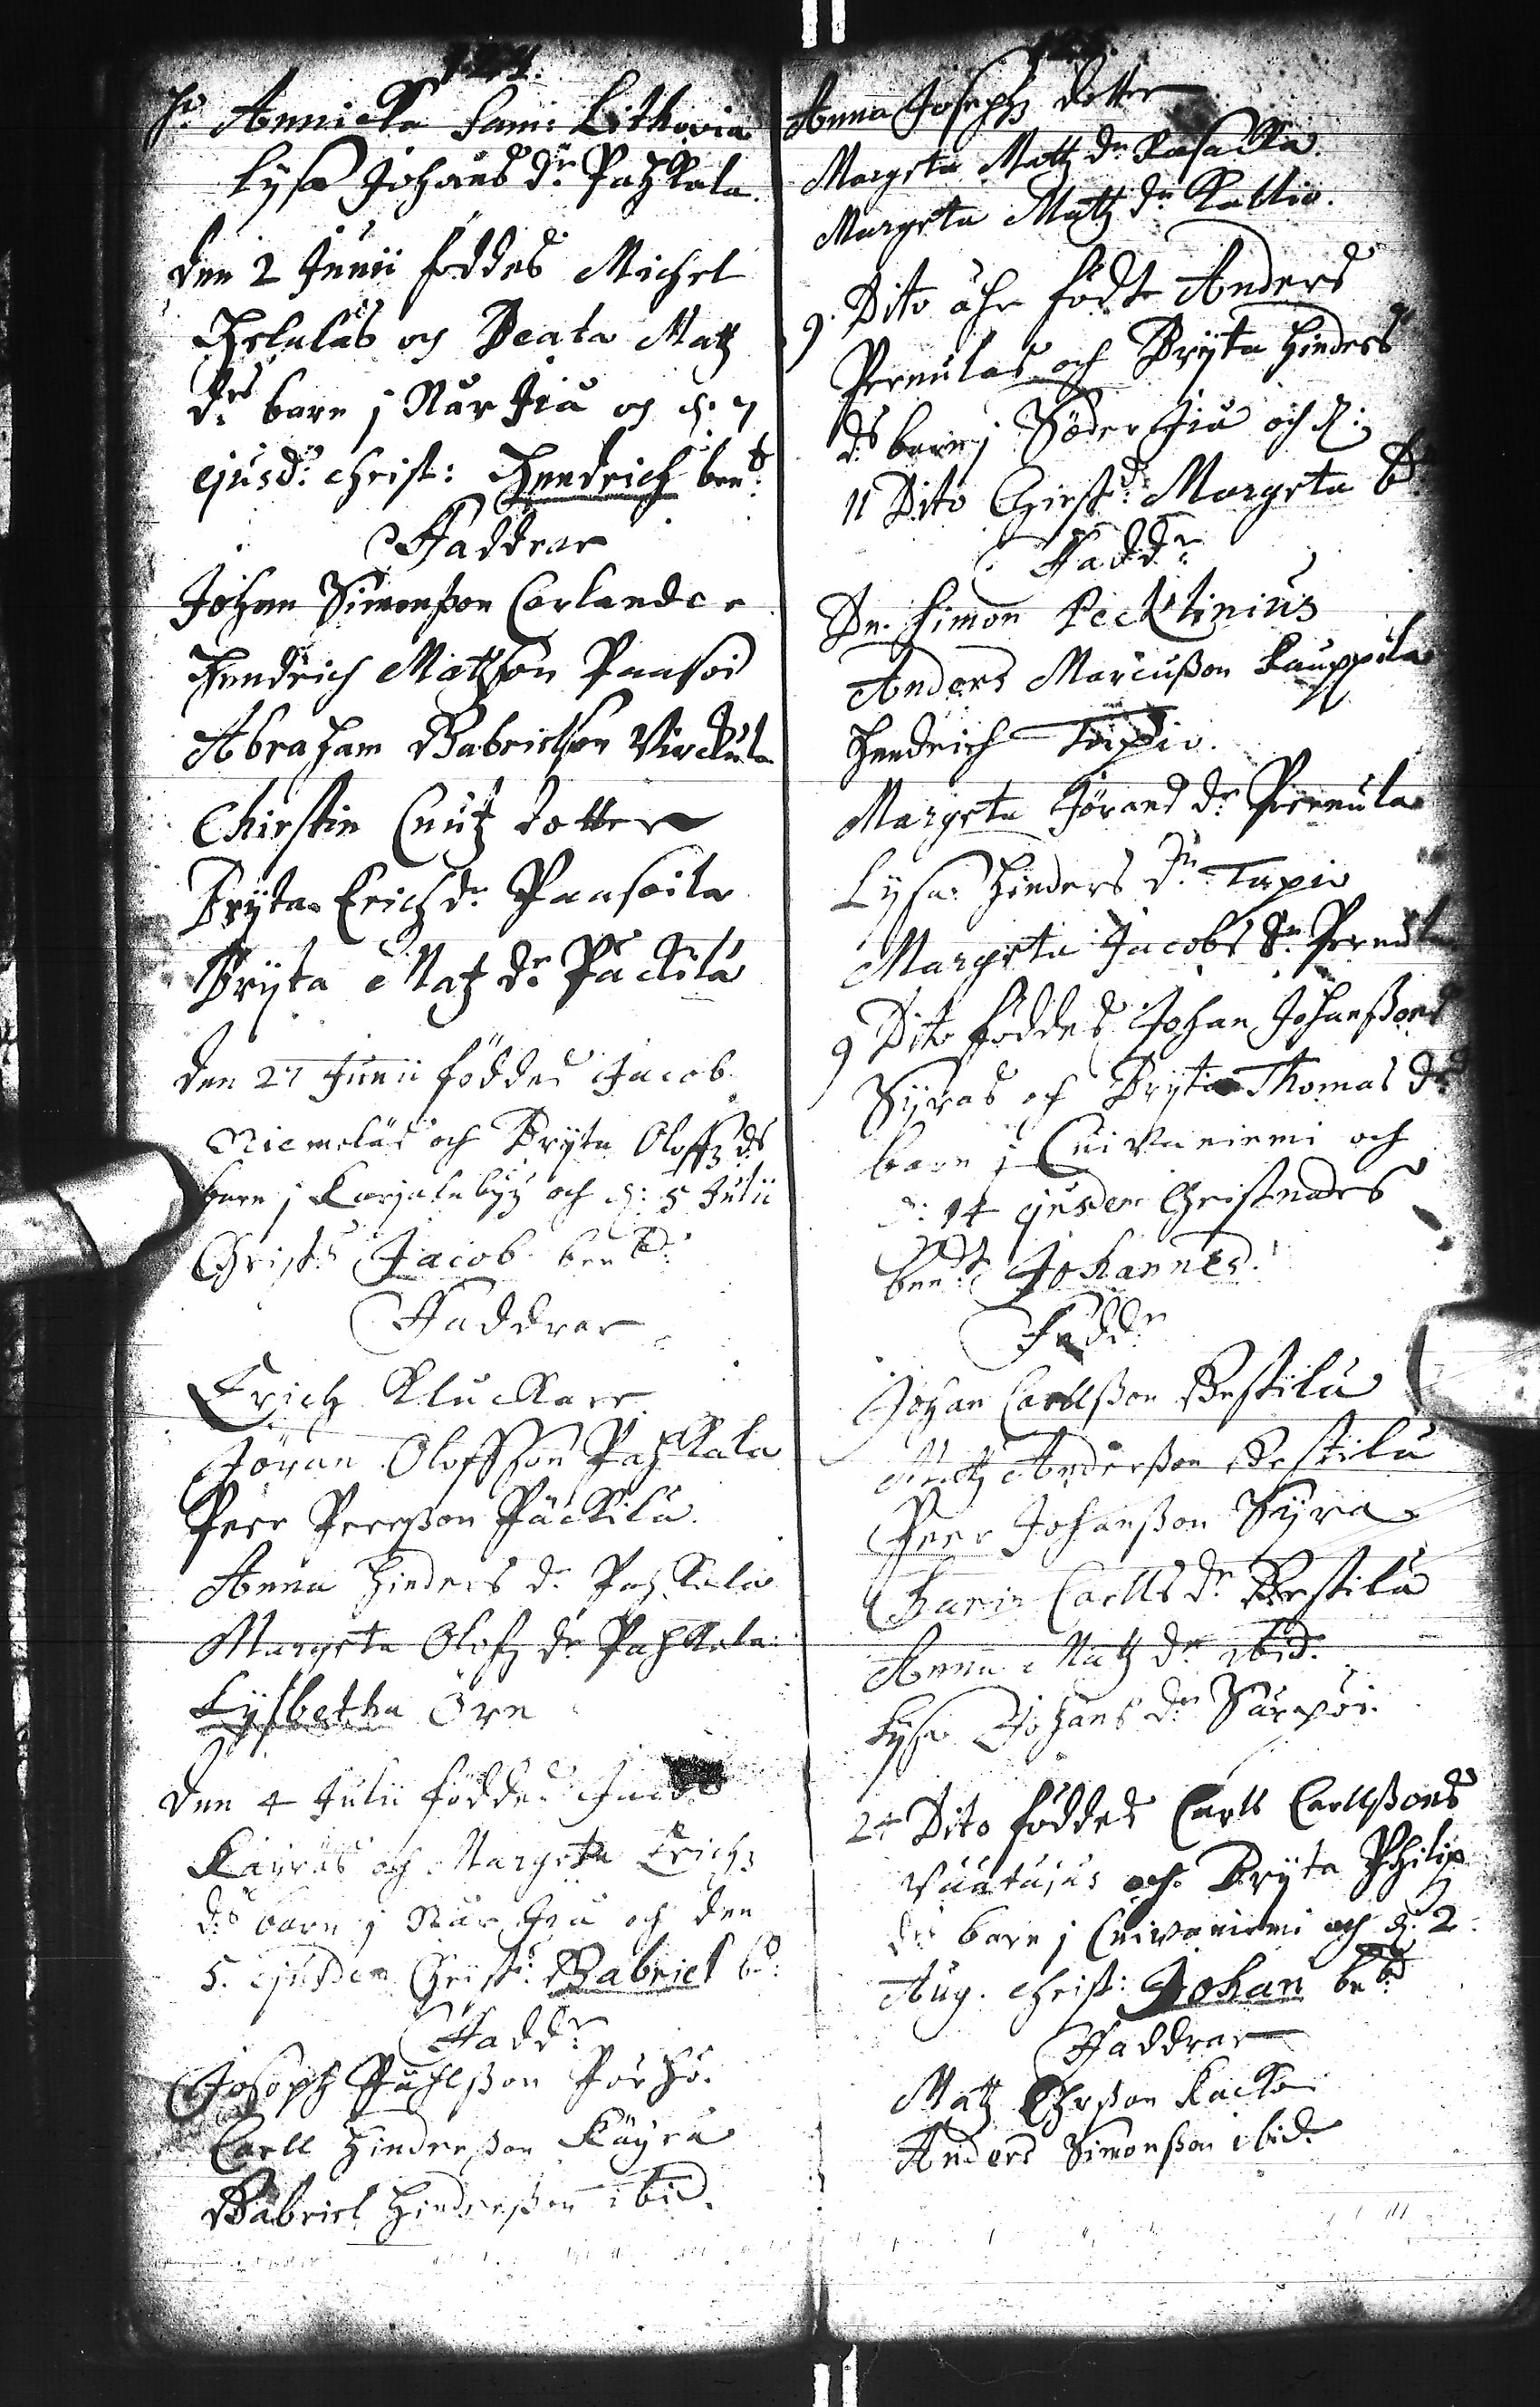 124.
H: Annicka Sam: Lithovia
Lysa Johans dr Pahkala
den 2 Junii föddes Michel
Helalas och Beata Matz
drs barn j När Jia och d: 7
ejusd: Christ: Hendrich ben:d
Faddrar
Johan Simonßon Carlander
Hendrich Matzson Paasoi
Abraham Gabrielson Virckula
Chirstin Cnutz dotter
Bryta Erichz dr Paasoila
Bryta Matz dr Päckilä
den 27 Junii föddes Jacob
Niemeläs och Bryta Oloffz ds
barn j Karjalabyz och d: 5 Julii
Christ:s Jacob ben:d
Faddrar
Erich Kluckare
Jöran Olofsson Pahkala
Peer Peerßon Päckilä
Anna Hinders dr Pahkala
Margeta Olofz dr Pahkala
Lysbetha Öra
den 4 Julii föddes Jacob
Käyräs och Margeta Erichz
ds barn j När Jia och den
5. ejusdem Christ: Gabriel b:d
Fadd:r
Joseph Påhlßon Pörhö
Carll Hindersson Käyrä
Gabriel Hindersson ibid.
Anna Josephz dotter
Margeta Matz dr Kasacka
Margeta Matz dr Kallio.
9. Dito åhr födt Anders
Permulas och Bryta Hinders
ds barn j Söder Jia och d:
11 Dito Christ:d Margeta b:d
Fadd:r
Dn. Simon Pecklinius
Anders Marcußon Kauppila
Hendrich Tapio.
Margeta Jörans dr Permula
Lysa Hinders dr Tapio
Margeta Jacobs dr Permula
9 Dito föddes Johan Johanßons
Syras och Bryta Thomas drs
barn j Cuivaniemi och
d: 14 ejusdem Christnades
ben:d Johannes.
Fadd:r
Johan Carllßon Bestila
Matz Anderßon Bestila
Peer Johanßon Syra
Karin Carlls dr Bestila
Anna Matz dr ibid.
Lysa Johans dr Särapöi
24 Dito föddes Carll Carllßons
och Bryta Philip
ds barn j Cuivaniemi och d. 2
Aug. Christ: Johan be:d
Faddrar
Matz Ersson Kacko
Anders Simonßon ibid.